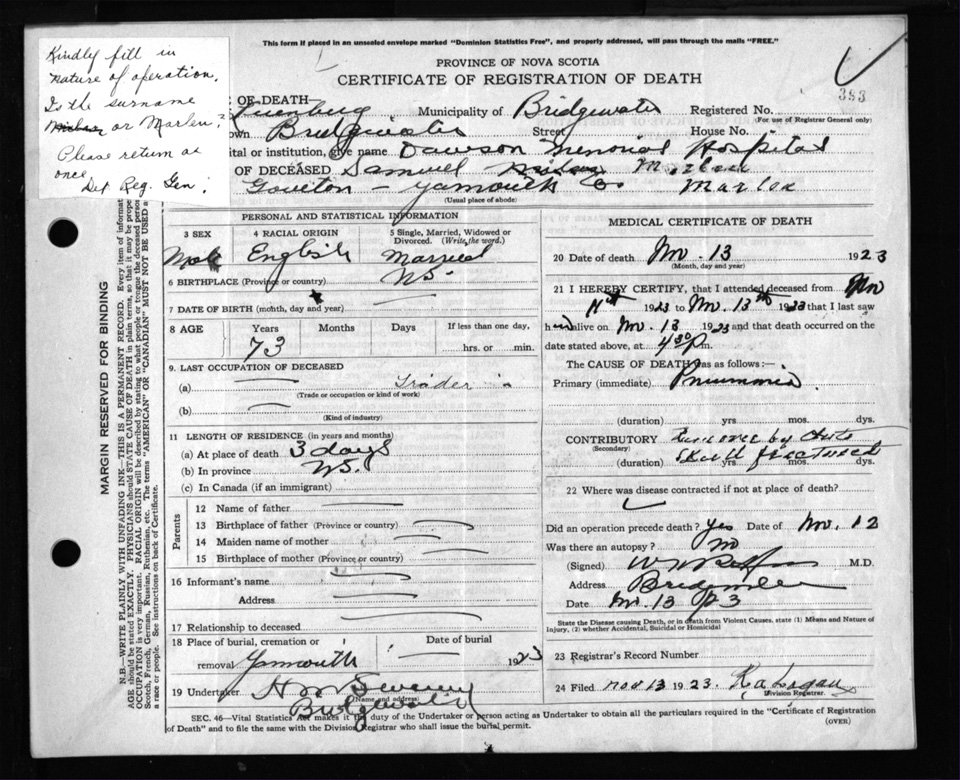 Kindly fill in
nature of operation.
Is the surname
or Marlen?
Please return at
once
Det Reg. Gen.
This form if placed in an unsealed envelope marked "Dominion Statistics Free", and properly addressed, will pass through the mails "FREE."
PROVINCE OF NOVA SCOTIA
CERTIFICATE OF REGISTRATION OF DEATH
383
E OF DEATH— Municipality of Bridgewater Registered No.
(For use of Registrar General only)
own Bridgewater Street House No.
ital or institution, give name Dawson Memorial Hospital
OF DECEASED Samuel
Yarmouth Co
(Usual place of abode)
PERSONAL AND STATISTICAL INFORMATION
3 SEX 4 RACIAL ORIGIN 5 Single, Married, Widowed or Divorced. (Write the word.)
Male English Married
6 BIRTHPLACE (Province or country) NS.
7 DATE OF BIRTH (month, day and year)
8 AGE Years Months Days If less than one day,
73 hrs. or min.
9. LAST OCCUPATION OF DECEASED
(a) Trader
(Trade or occupation or kind of work)
(b)
(Kind of industry)
11 LENGTH OF RESIDENCE (in years and months)
(a) At place of death 3 days
(b) In province NS.
(c) In Canada (if an immigrant)
Parents
12 Name of father
13 Birthplace of father (Province or country)
14 Maiden name of mother
15 Birthplace of mother (Province or country)
16 Informant's name
Address
17 Relationship to deceased
18 Place of burial, cremation or Date of burial
removal Yarmouth 1923
19 Undertaker
(Name and address)
Bridgewater
MEDICAL CERTIFICATE OF DEATH
20 Date of death Nov. 13 1923
(Month, day and year)
21 I HEREBY CERTIFY, that I attended deceased from Nov
11th 1923 to Nov. 13th 1923 that I last saw
him alive on Nov. 13 1923 and that death occurred on the
date stated above, at 4 30 P m.
The CAUSE OF DEATH was as follows:—
Primary (immediate) Pneumonia
(duration) yrs mos. dys.
CONTRIBUTORY Run over by Auto
(Secondary)
Skull fractured
(duration) yrs mos. dys.
22 Where was disease contracted if not at place of death?
Did an operation precede death? Yes Date of Nov. 12
Was there an autopsy? No
(Signed) M.D.
Address Bridgewater
Date Nov. 13 23
State the Disease causing Death, or in death from Violent Causes, state (1) Means and Nature of Injury, (2) whether Accidental, Suicidal or Homicidal
23 Registrar's Record Number
24 Filed Nov 13 1923.
Division Registrar.
SEC. 46—Vital Statistics Act makes it the duty of the Undertaker or person acting as Undertaker to obtain all the particulars required in the "Certificate of Registration
of Death" and to file the same with the Division Registrar who shall issue the burial permit. (OVER)
MARGIN RESERVED FOR BINDING
N.B.—WRITE PLAINLY WITH UNFADING INK—THIS IS A PERMANENT RECORD. Every item of informat
AGE should be stated EXACTLY. PHYSICIANS should STATE CAUSE OF DEATH in plain terms, so that it may be prope
OCCUPATION is very important. RACIAL ORIGIN will be described by stating to what people or tongue the deceased perso
Scotch, French, German, Russian, Ruthenian, etc. The terms "AMERICAN" OR "CANADIAN" MUST NOT BE USED a
a race or people. See instructions on back of Certificate.